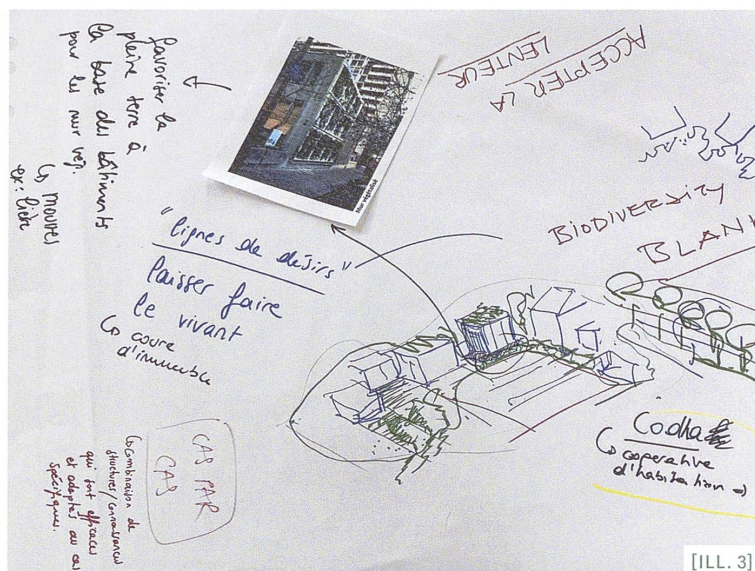 favoriser la
pleine terre à
la base des bâtiments
pour les mur vég.
↳ mousses
ex: lierre
Mur végétalisé
ACCEPTER LA
LENTEUR
BIODIVERSITY
BLAN
"lignes de désirs"
laisser faire
le vivant
↳ coure
d'immeuble
CAS PAR
CAS
↳ Combinaison de
structures/connaissances
qui sont efficaces
et adaptés au cas
spécifiques.
Codha
↳ cooperative
d'habitation
[ILL. 3]